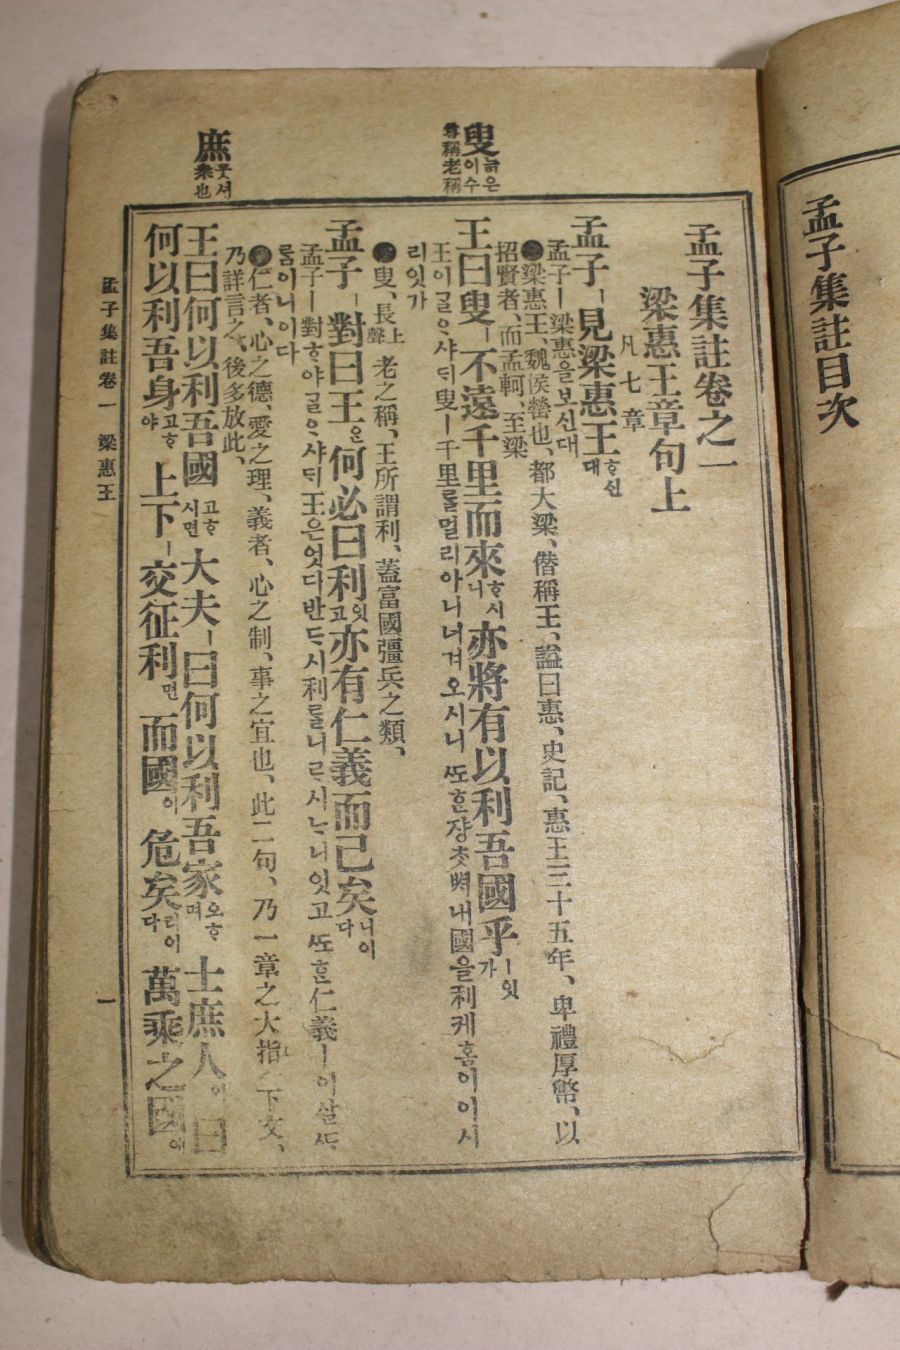 孟子集註目次
叟 늙은이수 尊稱老稱
庶 뭇셔 衆也
孟子集註卷之一
梁惠王章句上
凡七章
孟子ㅣ見梁惠王ᄒᆞ신대
孟子ㅣ梁惠을보신대
●梁惠王、魏侯罃也、都大梁、僭稱王、諡曰惠、史記、惠王三十五年、卑禮厚幣、以
招賢者、而孟軻、至梁
王曰叟ㅣ不遠千里而來ᄒᆞ시니亦將有以利吾國乎ㅣ잇가
王이ᄀᆞᆯᄋᆞ샤ᄃᆡ叟ㅣ千里ᄅᆞᆯ멀리아니녀겨오시니ᄯᅩᄒᆞᆫ쟝ᄎᆞᆺᄡᅥ내國을利케홈이이시
리잇가
●叟、長上聲老之稱、王所謂利、蓋富國彊兵之類、
孟子ㅣ對曰王은何必曰利잇고亦有仁義而已矣니이다
孟子ㅣ對ᄒᆞ야ᄀᆞᆯᄋᆞ샤ᄃᆡ王은엇디반ᄃᆞ시利ᄅᆞᆯ니ᄅᆞ시ᄂᆞ니잇고ᄯᅩᄒᆞᆫ仁義ㅣ이실ᄯᆞ
ᄅᆞᆷ이니이다
●仁者、心之德、愛之理、義者、心之制、事之宜也、此二句、乃一章之大指、下文、
乃詳言之、後多放此、
王曰何以利吾國고ᄒᆞ시면大夫ㅣ曰何以利吾家오ᄒᆞ며士庶人이曰
何以利吾身고ᄒᆞ야上下ㅣ交征利면而國이危矣리이다萬乘之國에
孟子集註卷一 梁惠王 一